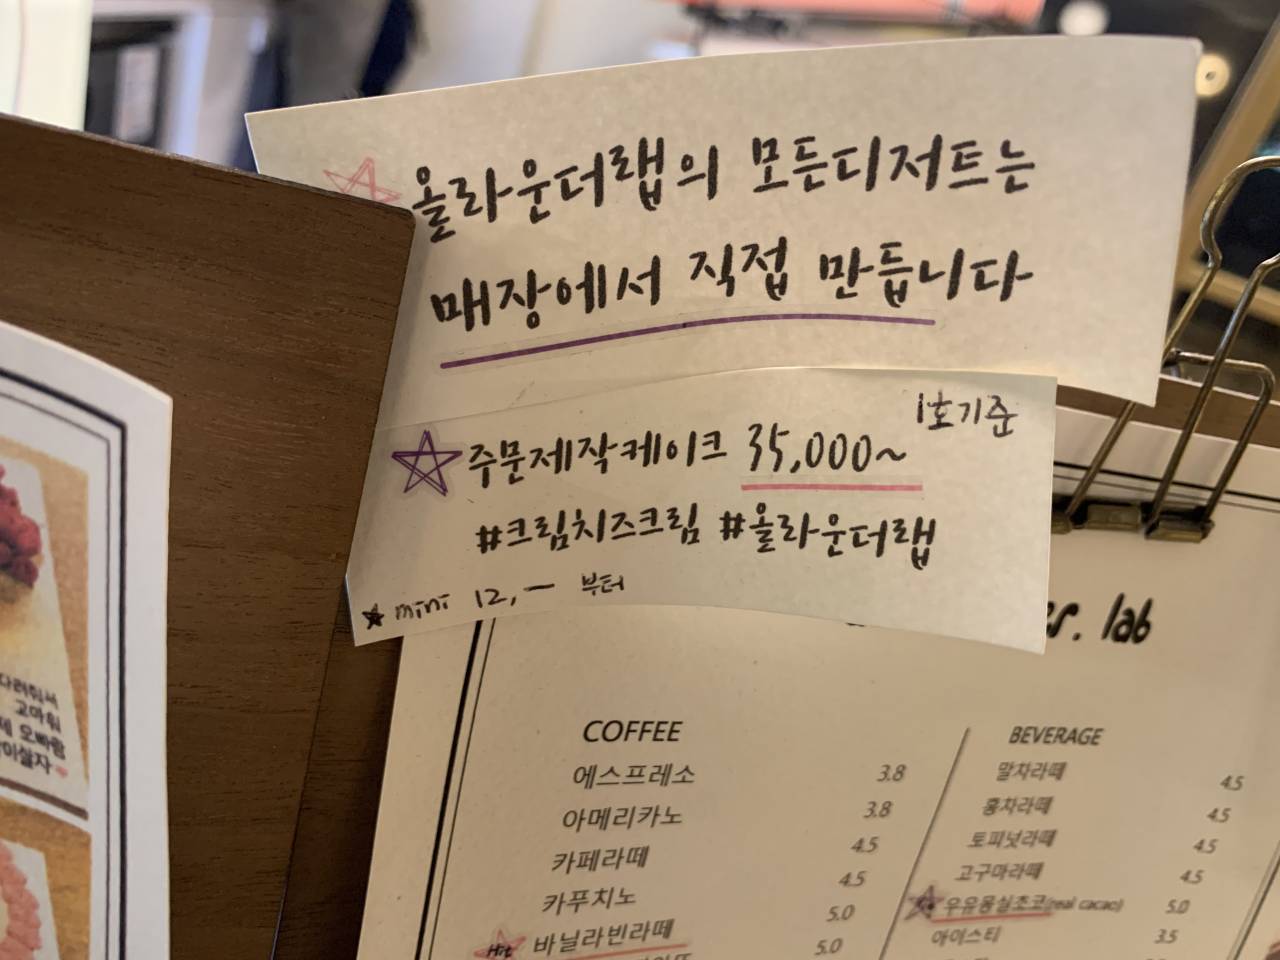 올라운더랩의 모든디저트는
매장에서 직접 만듭니다
주문제작케이크 35,000~ 1호기준
#크림치즈크림 #올라운더랩
mini 12,― 부터
lab
COFFEE
에스프레소 3.8
아메리카노 3.8
카페라떼 4.5
카푸치노 4.5
Hit 바닐라빈라떼 5.0
5.0
BEVERAGE
말차라떼 4.5
홍차라떼 4.5
토피넛라떼 4.5
고구마라떼 4.5
우유몽실초코(real cacao) 5.0
아이스티 3.5
고마워
오빠랑